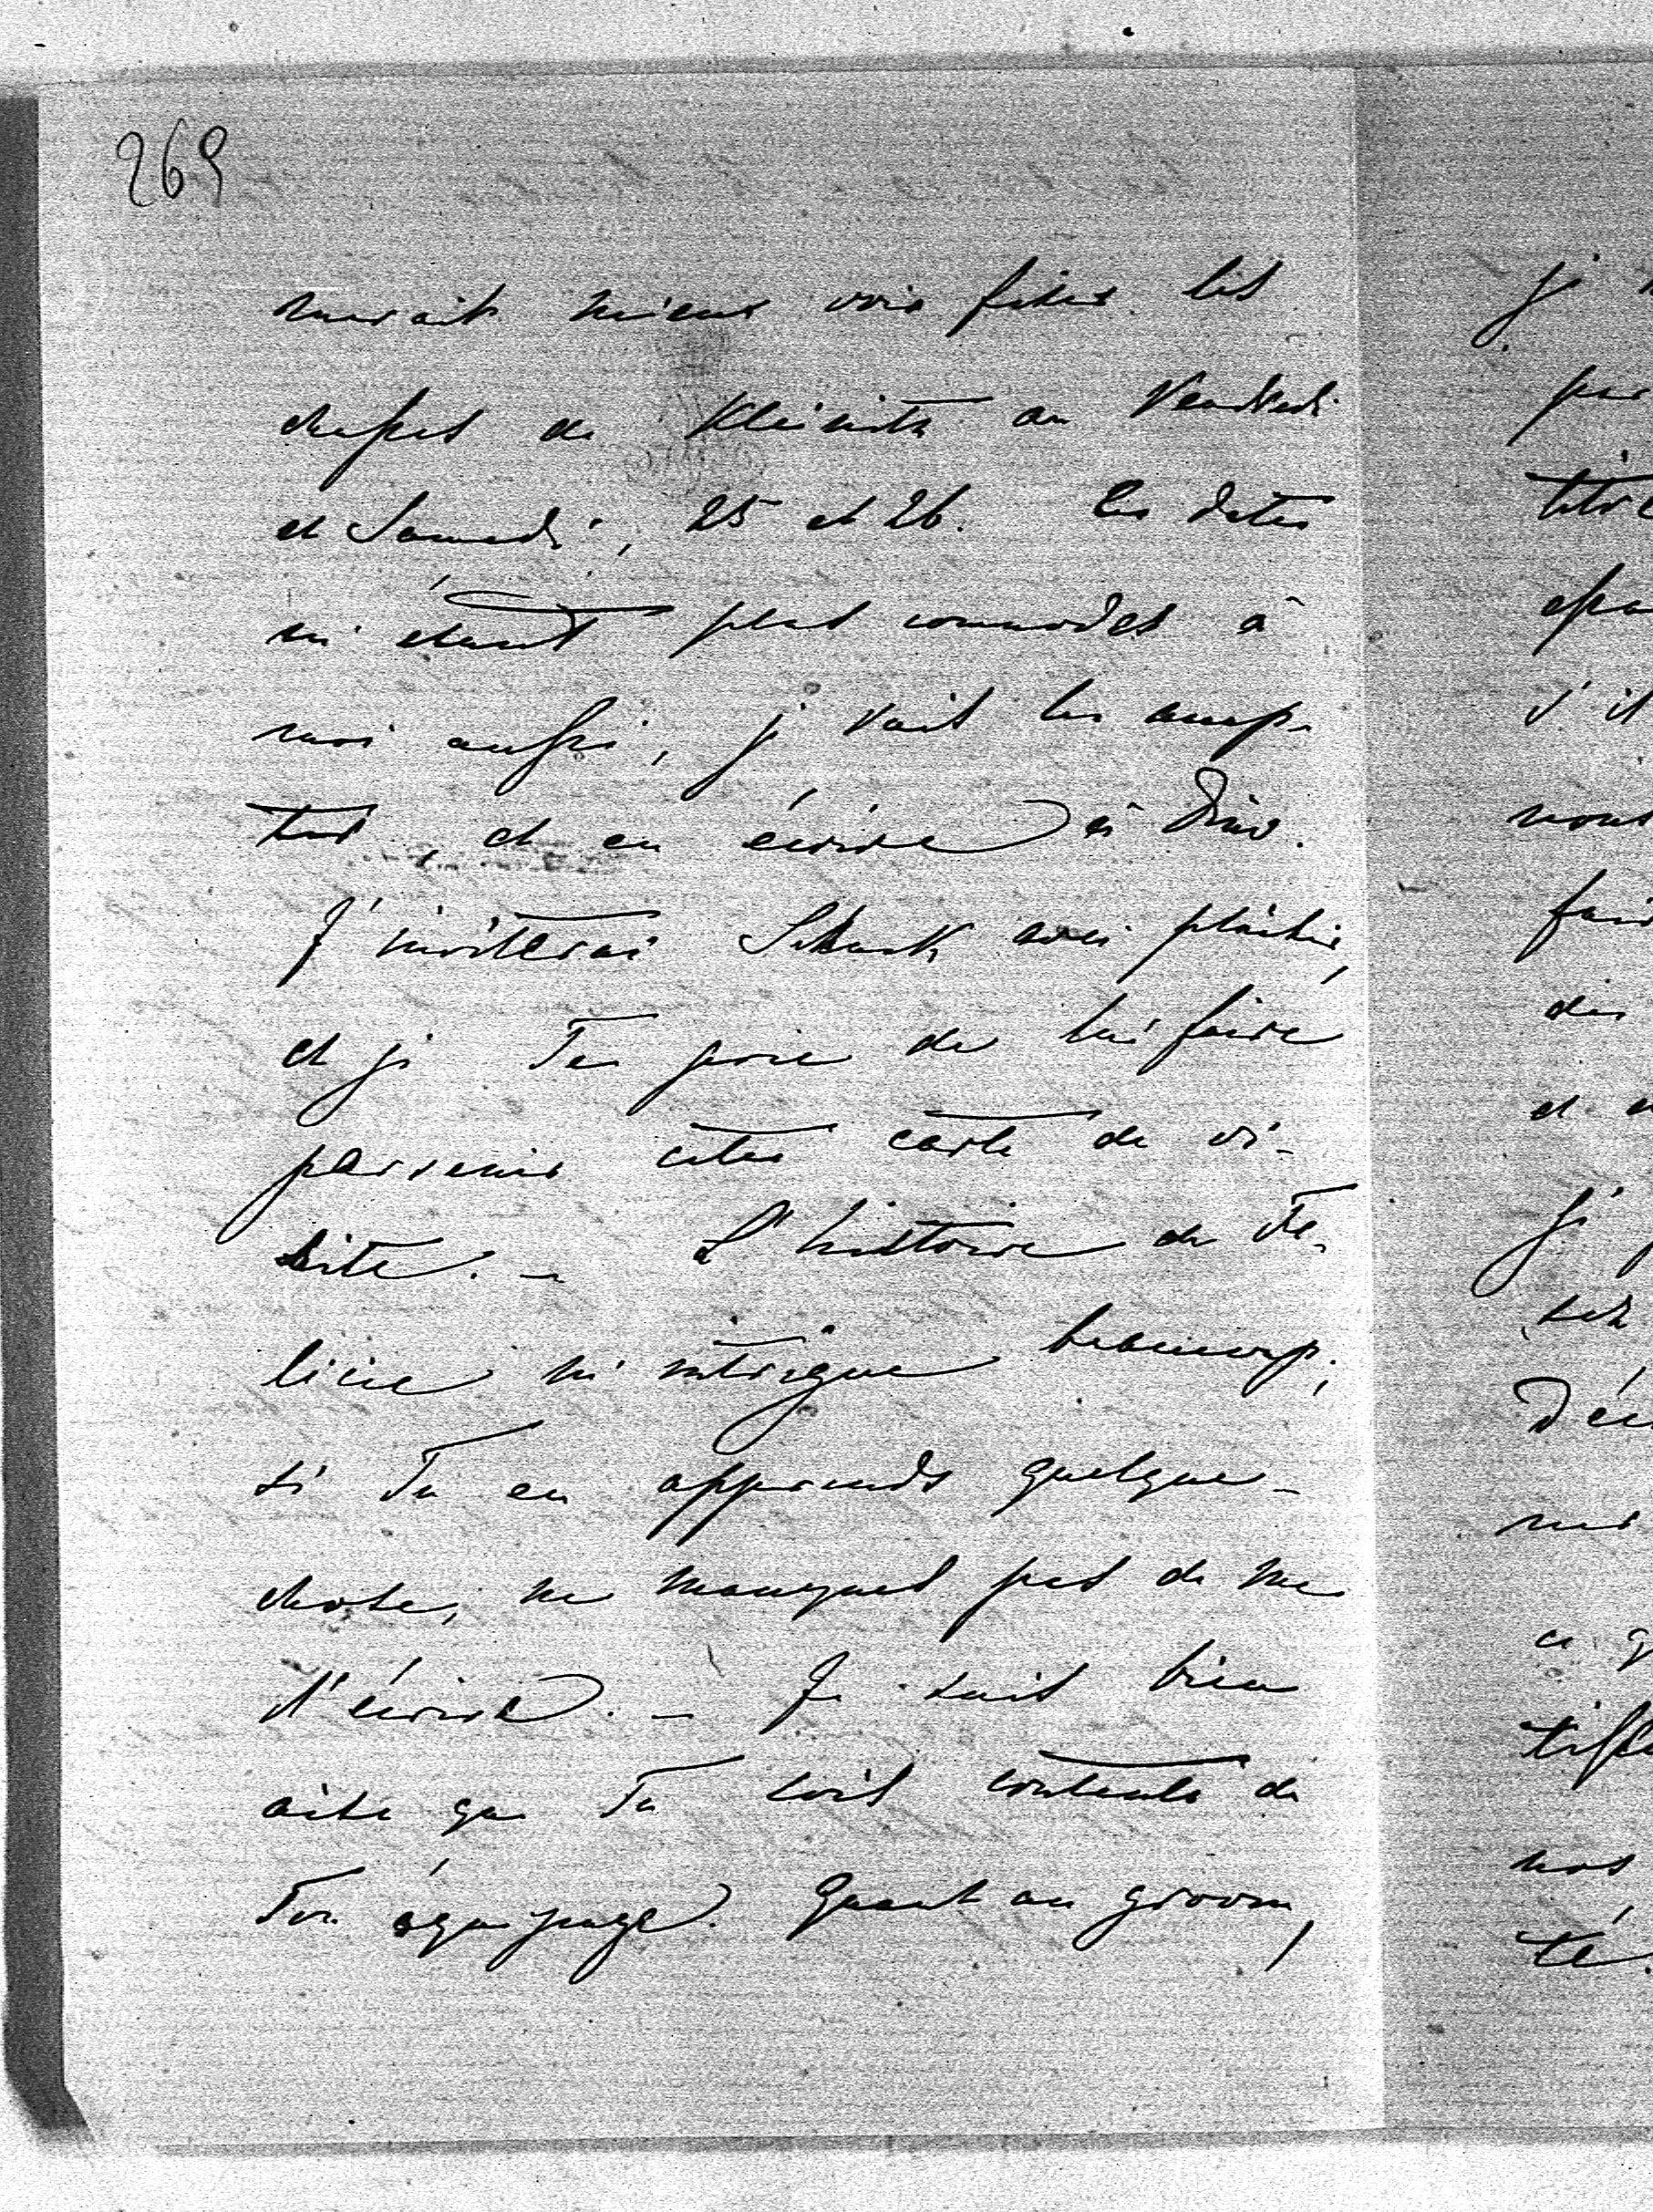 269
merait mieux voir fixer les
chasses de Kleinitz au Vendredi
et Samedi, 25 et 26. Ces dates
m'étant plus commodes à
moi aussi, je vais les accep-
ter, et en écrire à
J'inviterai avec plaisir,
et je Te prie de lui faire
parvenir cette carte de vi-
site. – L'histoire de Fé-
licie m'intrigue beaucoup;
si Tu en apprends quelque-
chose, ne manques pas de me
l'écrire. – Je suis bien
aise que Tu sois contente de
Ton équipage. Quant au groom,